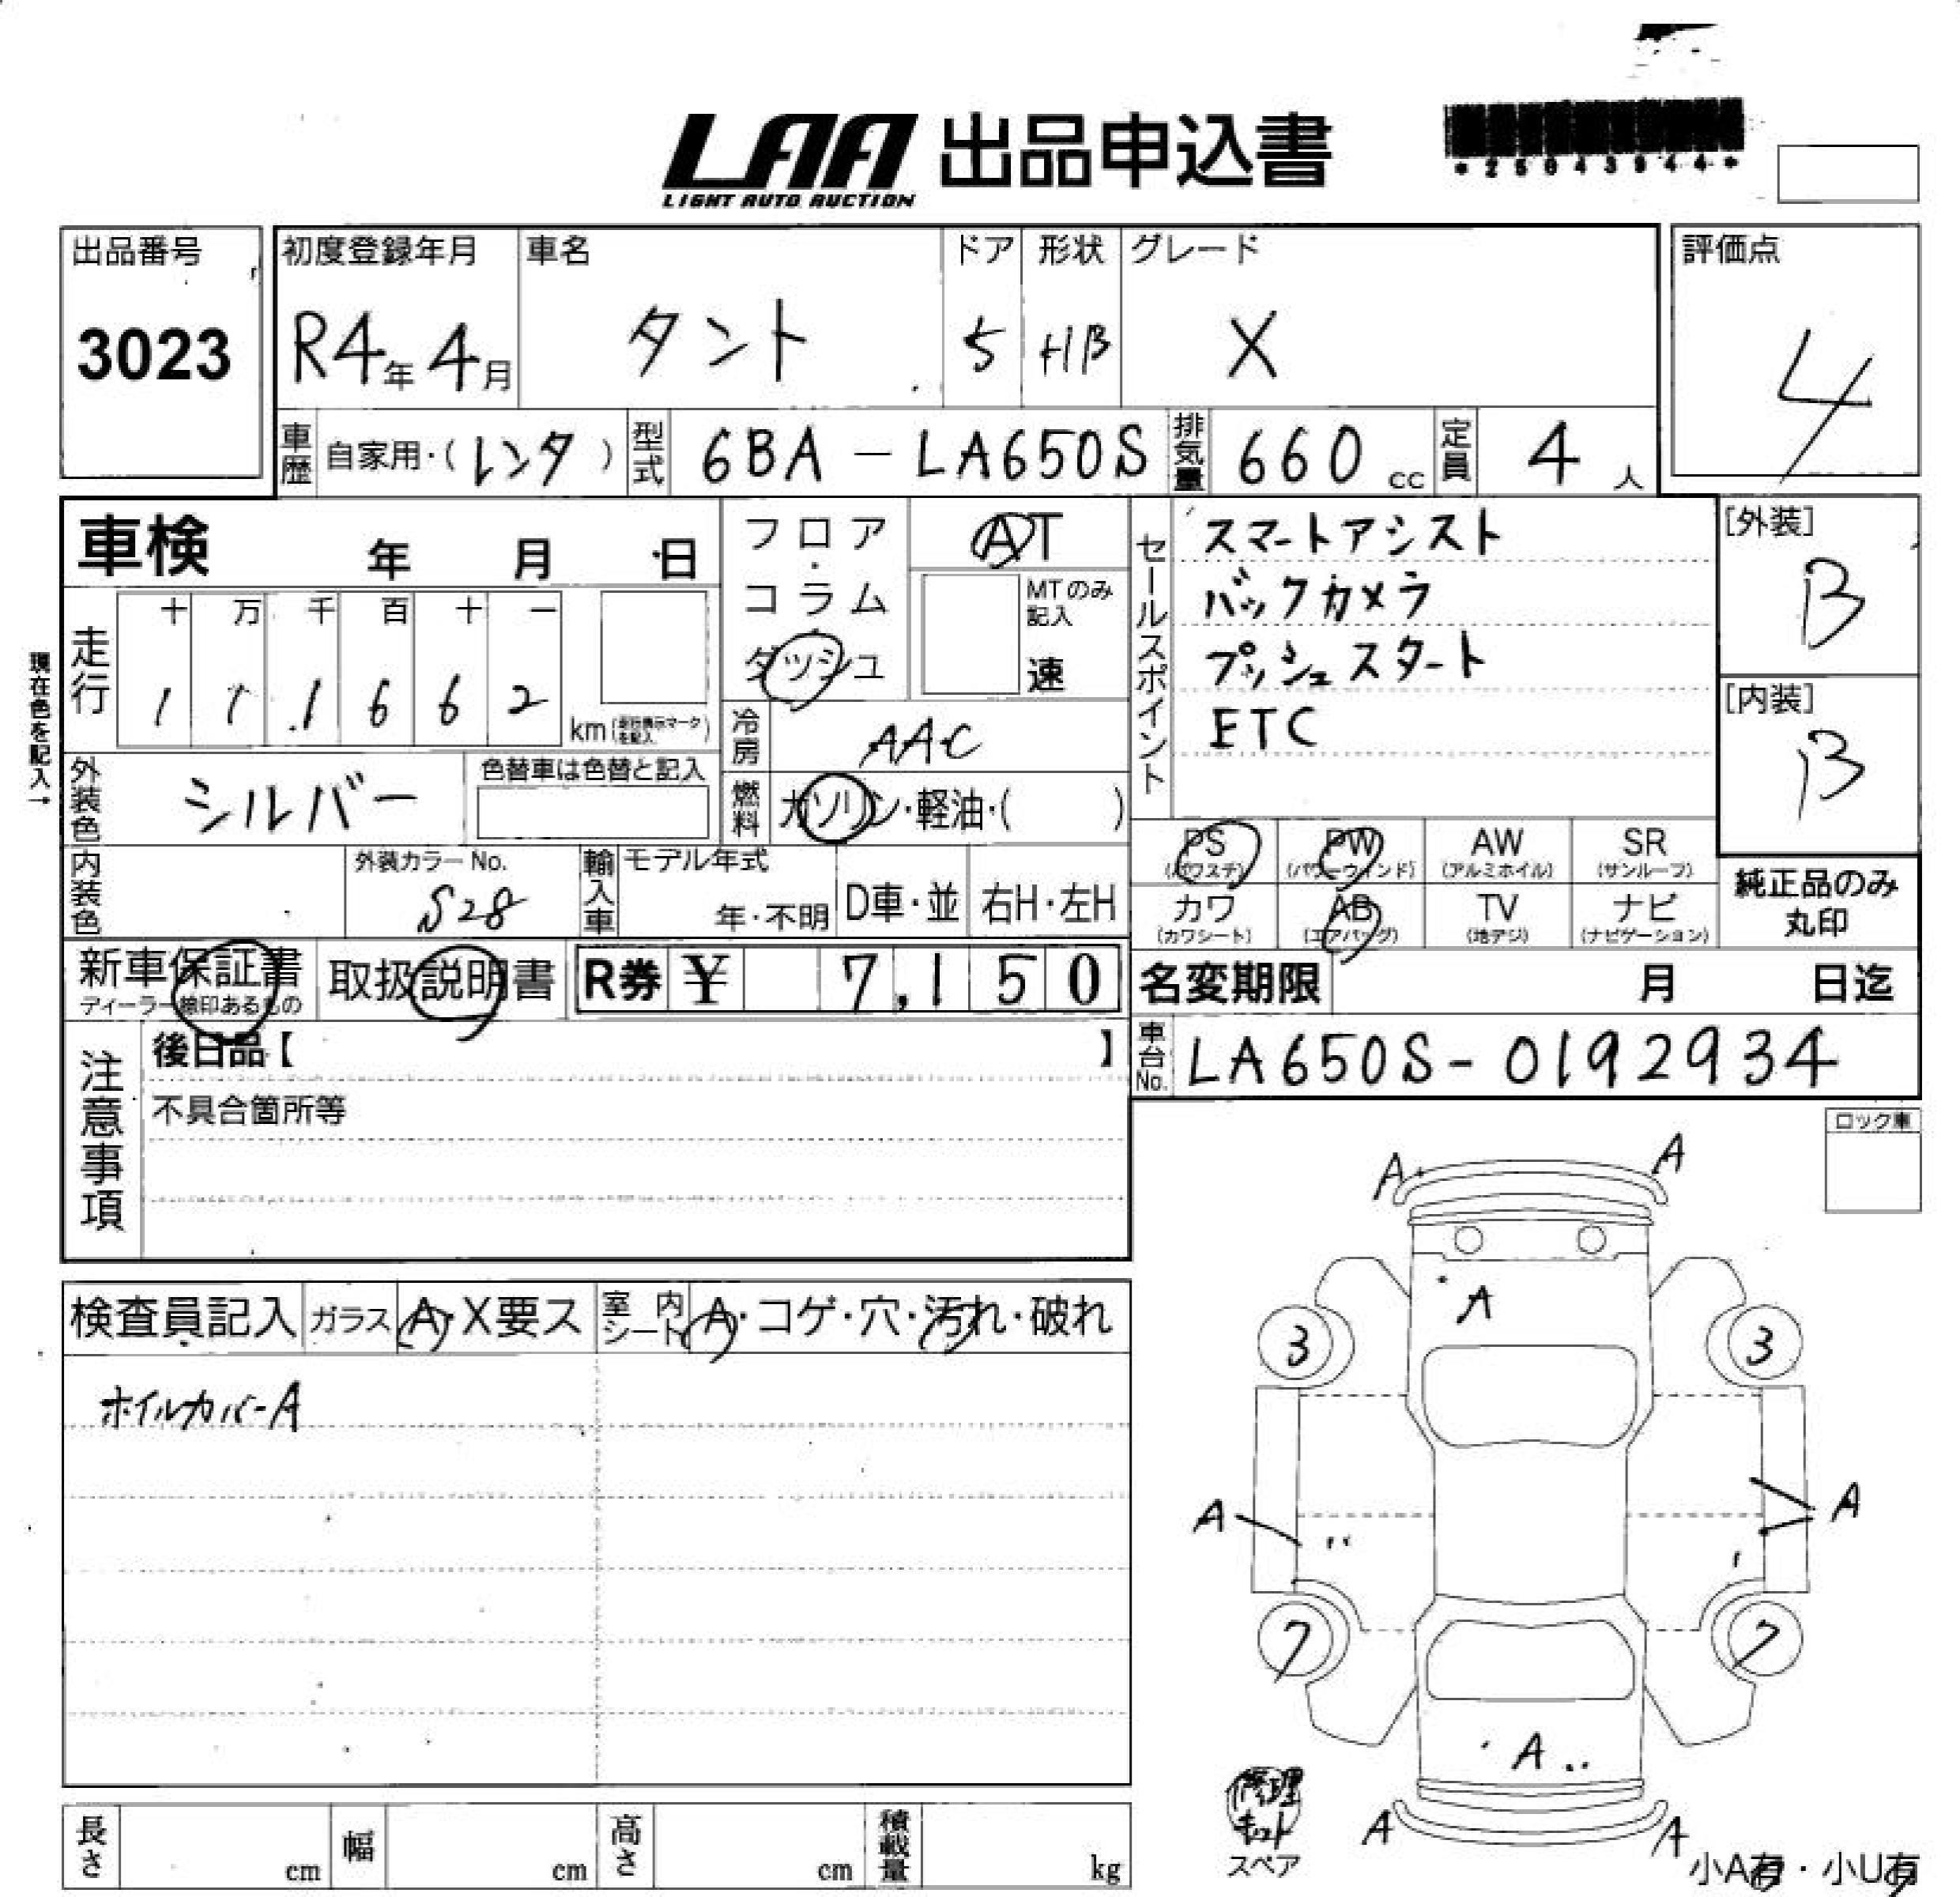 LAA 出品申込書
LIGHT AUTO AUCTION
*25043944*
出品番号
3023
初度登録年月
R4年 4月
車名
タント
ドア
5
形状
HB
グレード
X
評価点
4
車歴
自家用・(レンタ)
型式
6BA - LA650S
排気量
660 cc
定員
4 人
車検 年 月 日
フロア・コラム
ダッシュ
AT
MTのみ記入
速
セールスポイント
スマートアシスト
バックカメラ
プッシュスタート
ETC
[外装]
B
[内装]
B
現在色を記入→
走行
十 万 千 百 十 一
1 1 1 6 6 2
km
冷房
AAC
外装色
シルバー
色替車は色替と記入
燃料
ガソリン・軽油・( )
PS
(パワステ)
PW
(パワーウィンド)
AW
(アルミホイル)
SR
(サンルーフ)
カワ
(カワシート)
AB
(エアバッグ)
TV
(地デジ)
ナビ
(ナビゲーション)
純正品のみ
丸印
内装色
外装カラーNo.
S28
輸入車
モデル年式
年・不明
D車・並
右H・左H
新車保証書
取扱説明書
R券 ¥ 7,150
名変期限 月 日迄
車台No.
LA650S-0192934
注意事項
後日品【 】
不具合箇所等
ロック車
検査員記入
ガラス
A・X要ス
室内シート
A・コゲ・穴・汚れ・破れ
ホイルカバーA
A
A
A
3
3
A
A
7
7
A
A
A
修理キット
スペア
小A有・小U有
長さ cm
幅 cm
高さ cm
積載量 kg